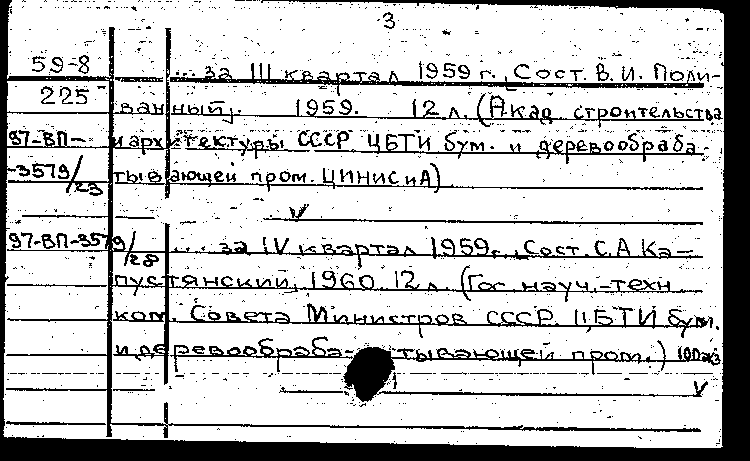 3
59-8 ... за III квартал 1959 г. [Сост. В. И. Поли-
225 ванный]. 1959. 12 л. (Акад. строительства
97-ВП- и архитектуры СССР. ЦБТИ бум. и деревообраба-
-3579/23 тывающей пром. ЦИНИС и А)
V
97-ВП-3579/28 ... за IV квартал 1959 г. [Сост. С. А. Ка-
пустянский]. 1960. 12 л. (Гос. науч.-техн.
ком. Совета Министров СССР. ЦБТИ бум.
и деревообраба-тывающей пром.) 100 экз
V